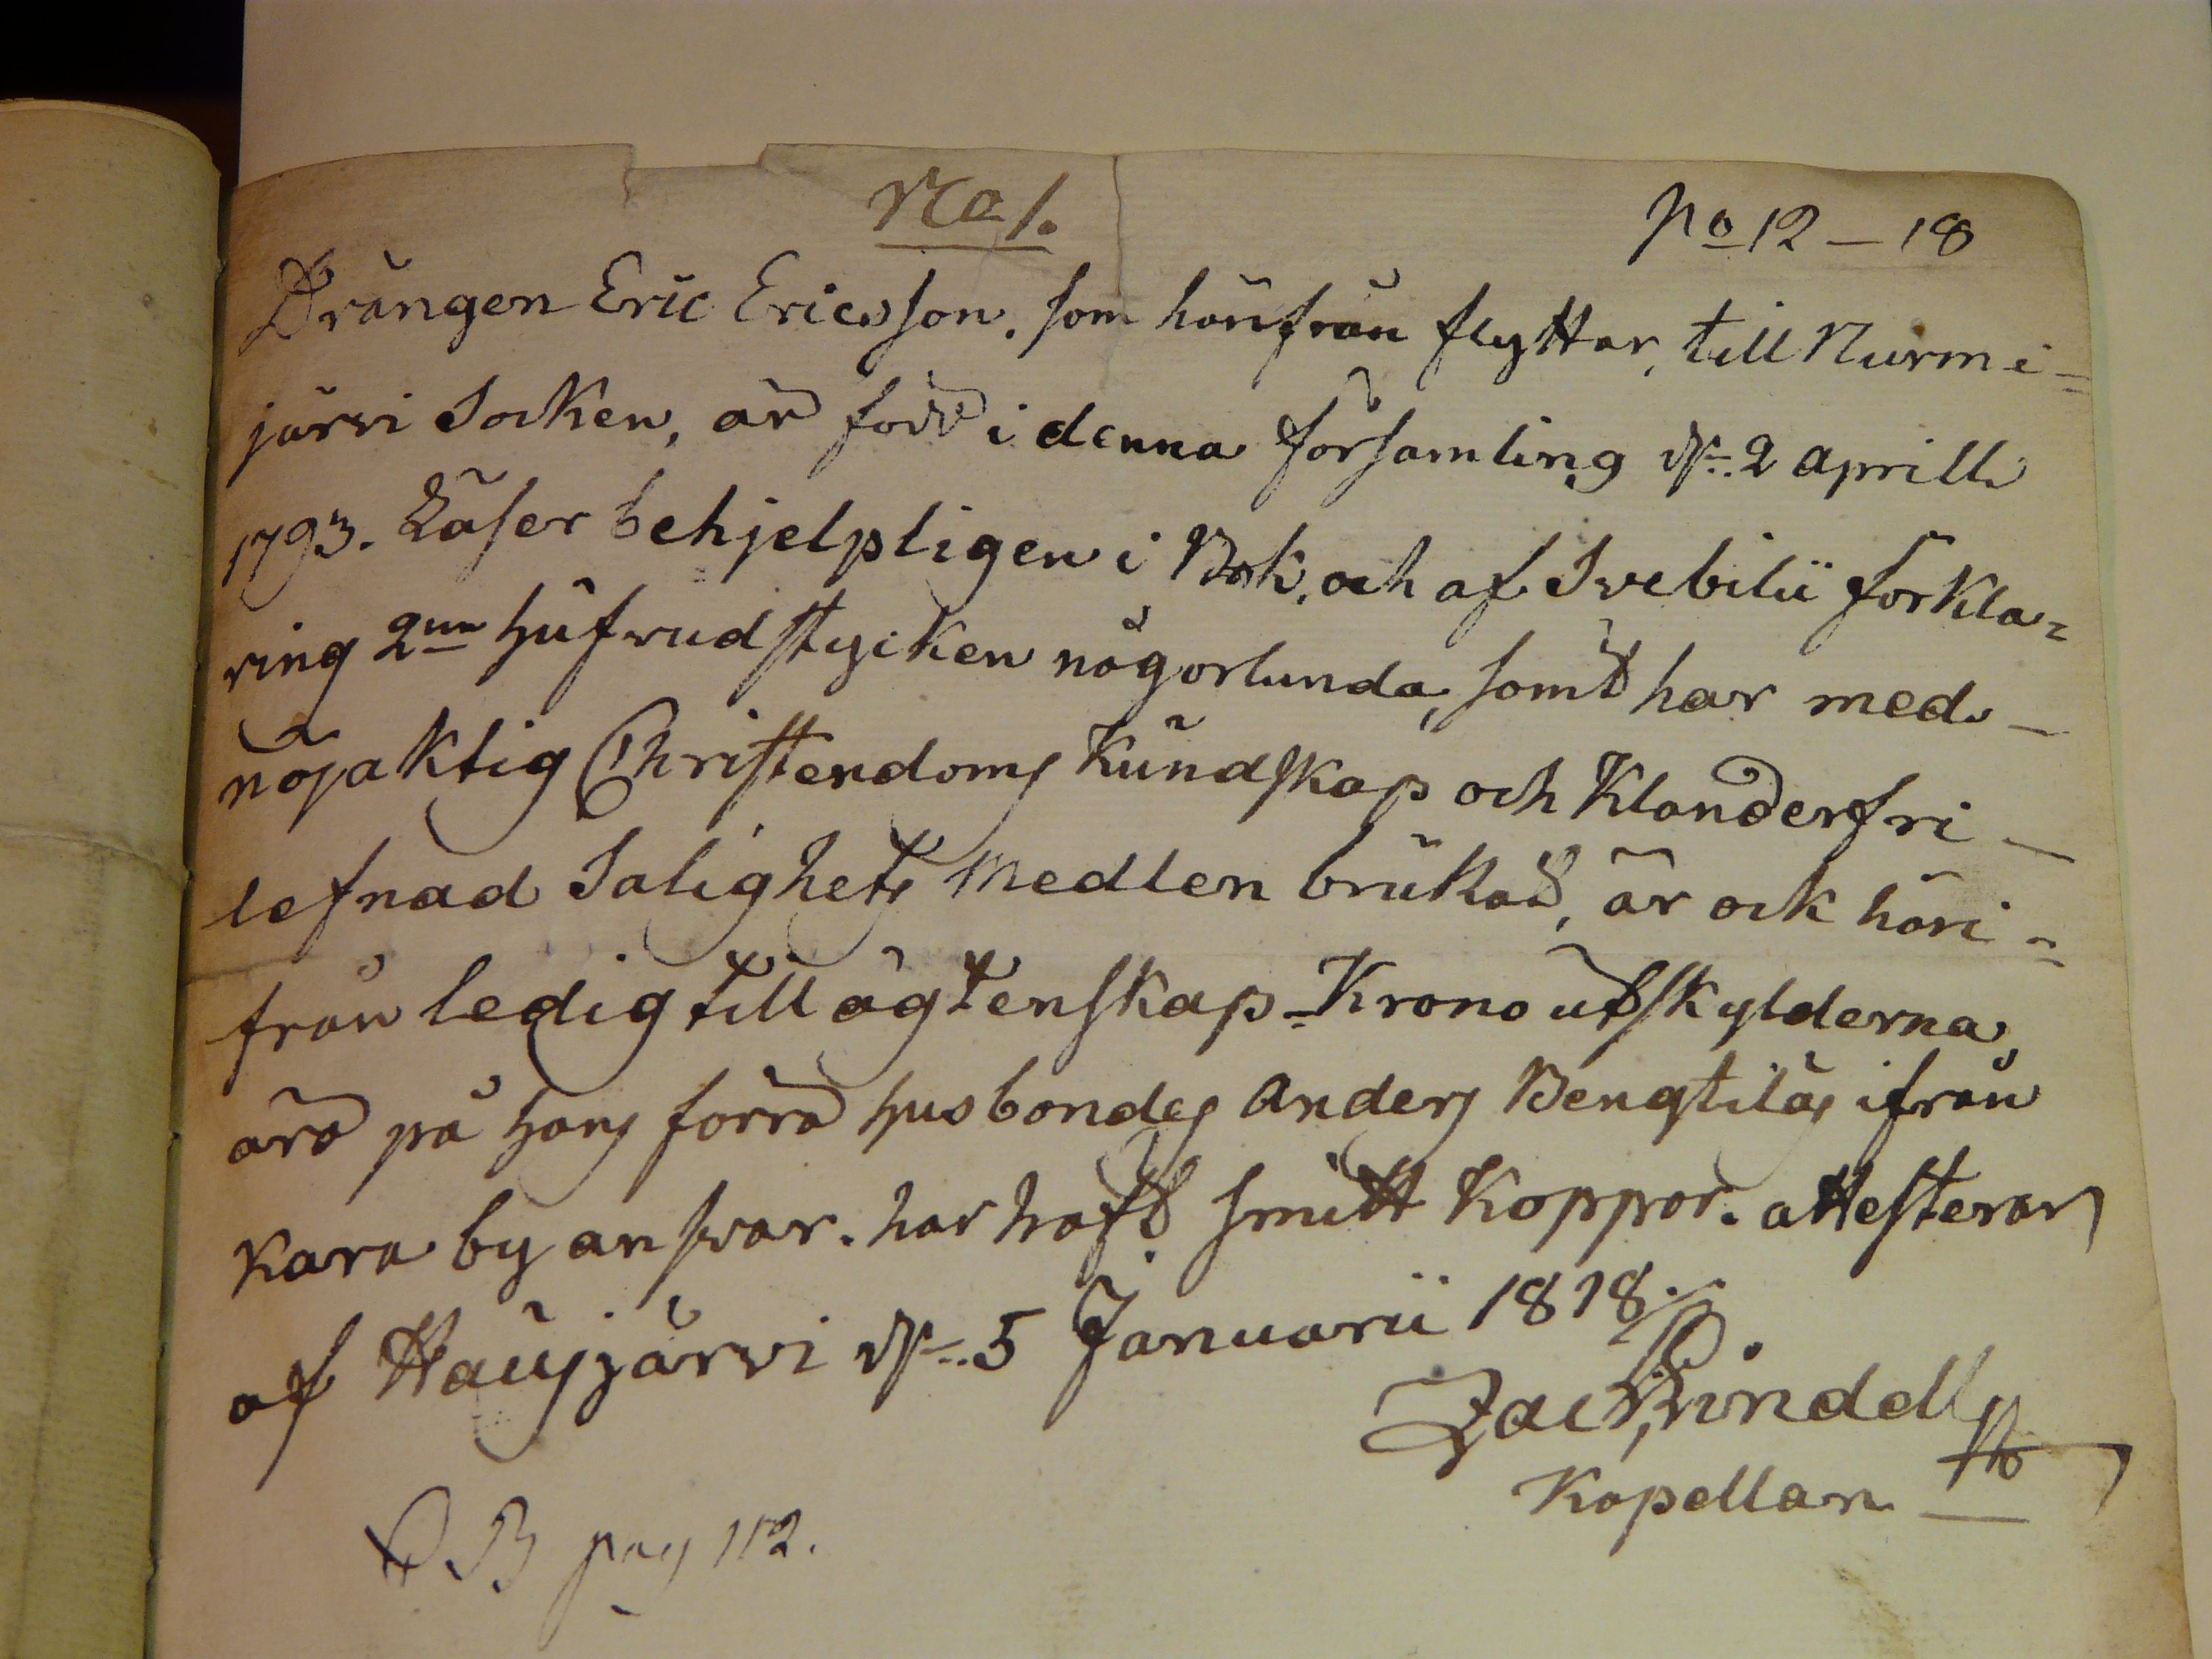 No 1.
No 12 – 18
Drängen Eric Ericsson. som härifrån flyttar, till Nurmi=
järvi Socken, är född i denna församling d. 2 Aprill
1793. Läser behjelpligen i Bok, och af Svebilii förkla=
ring 2nn hufvudstycken någorlunda, samt har med –
nöjaktig Christendoms kundskap och Klanderfri –
lefnad Salighets medlen brukat, är ock häri=
från ledig till ägtenskap – Krono utskylderna,
äro på hans förra husbondes Anders Bengtiläs ifrån
Kara by ansvar. har haft smitt Koppor. attesterar
af Hausjärvi d. 5 Januarii 1818.
Zac
Kapellan
B pag 112.